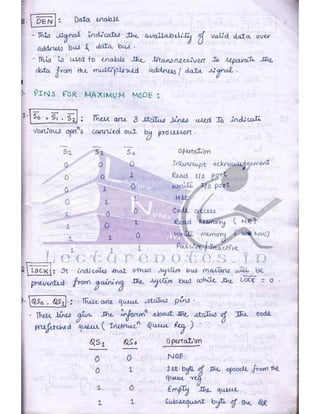 DEN : Data enable
- This signal indicates the availability of valid data over
address bus & data bus.
- This is used to enable the transreceiver to separate the
data from the multiplexed address / data signal.
PINS FOR MAXIMUM MODE :
S̅0 , S̅1 , S̅2 : These are 3 status lines used to indicate
various opnˢ carried out by processor.
S̅2 S̅1 S̅0 operation
0 0 0 Interrupt acknowledgement
0 0 1 Read I/o port
0 1 0 Write I/o port
0 1 1 Hlt
1 0 0 Code access
1 0 1 Read memory
1 1 0 Write memory
1 1 1 Passive / Inactive
Lecturenotes.in
LOCK : It indicates that other system bus masters will be
prevented from gaining the system bus while the L̅O̅C̅K̅ = 0.
QS0 , QS1 : These are queue status pins.
- These lines give the informⁿ about the status of the code
prefetched queue ( Instrucⁿ Queue Reg. )
QS1 QS0 Operation
0 0 NOP
0 1 1st byte of the opcode from the
queue reg.
1 0 Empty the queue
1 1 Subsequent byte of the QR